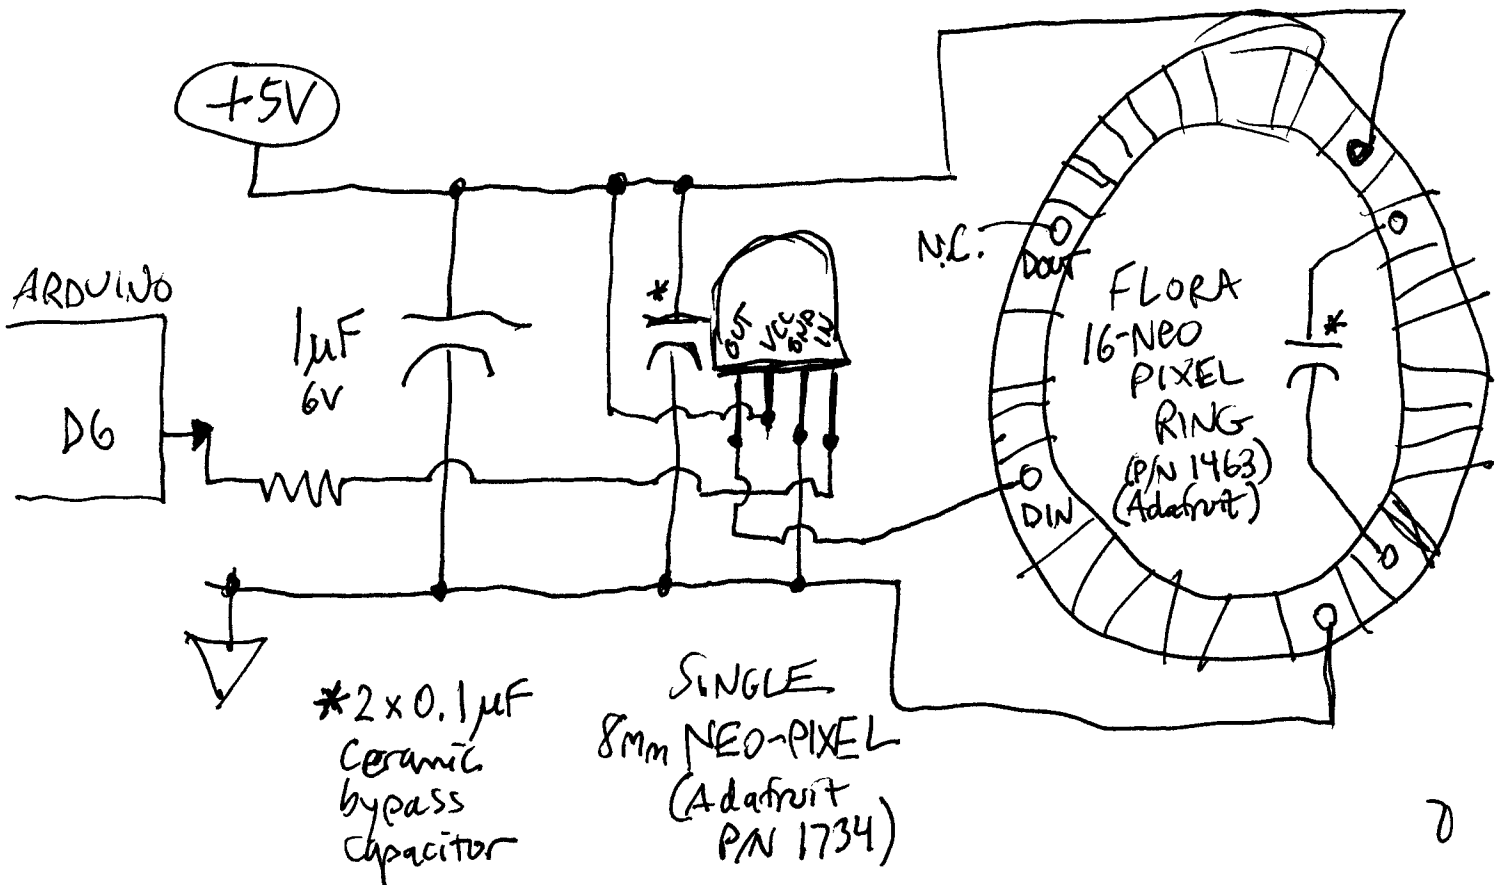 +5V
ARDUINO
D6
1µF
6V
*
OUT
VCC
GND
IN
N.C.
DOUT
FLORA
16-NEO
PIXEL
RING
(P/N 1463)
(Adafruit)
*
DIN
*2x0.1µF
Ceramic
bypass
Capacitor
SINGLE
8mm NEO-PIXEL
(Adafruit
P/N 1734)